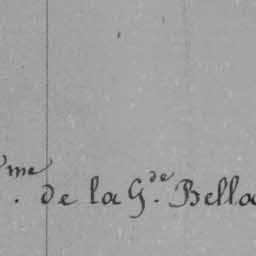 me. de la Gde. Bella